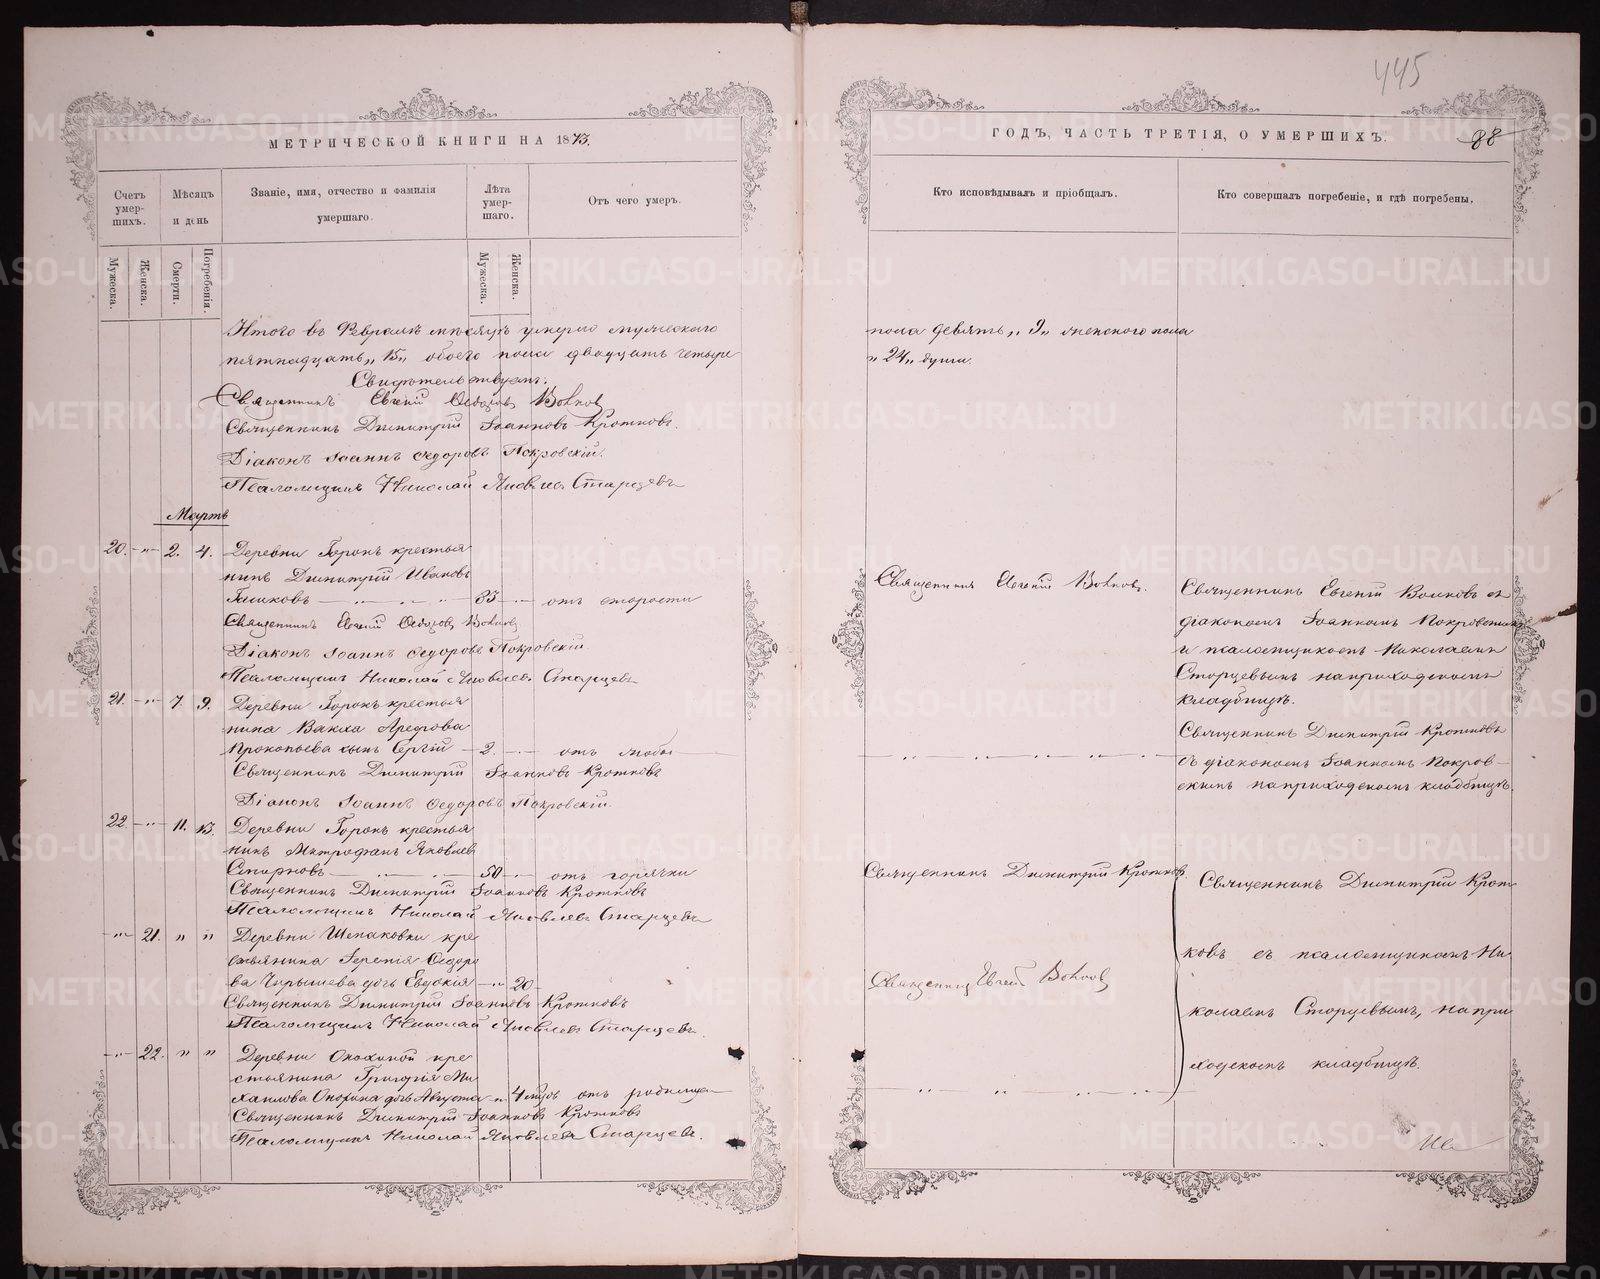 445
МЕТРИЧЕСКОЙ КНИГИ НА 1873.
Счетъ умер-шихъ.
Мѣсяцъ и день
Званіе, имя, отчество и фамилія умершаго.
Лѣта умер-шаго.
Отъ чего умеръ.
Мужеска.
Женска.
Смерти.
Погребенія.
Мужеска.
Женска.
Итого въ Февралѣ мѣсяцѣ умерло мужескаго
пятнадцать „15„ обоего пола двадцать четыре
Свидѣтельствуемъ:
Священникъ Евгеній Ѳедоровъ Волковъ
Священникъ Димитрій Іоанновъ Кротковъ.
Діаконъ Іоаннъ Ѳедоровъ Покровскій.
Псаломщикъ Николай Яковлевъ Старцевъ
Мартъ
20. -„- 2. 4. Деревни Горокъ крестья
нинъ Димитрій Ивановъ
85 -„- отъ старости
Священникъ Евгеній Ѳедоровъ Волковъ
Діаконъ Іоаннъ Ѳедоровъ Покровскій
Псаломщикъ Николай Яковлевъ Старцевъ
21. -„- 7. 9. Деревни Горокъ крестья
нина Вакха Арефова
Прокопьева сынъ Сергій - 2 -„- отъ
Священникъ Димитрій Іоанновъ Кротковъ
Діаконъ Іоаннъ Ѳедоровъ Покровскій.
22. -„- 11. 13. Деревни Горокъ крестья
нинъ Митрофанъ Яковлевъ
Смирновъ 50 -„- отъ горячки
Священникъ Димитрій Іоанновъ Кротковъ
Псаломщикъ Николай Яковлевъ Старцевъ
-„- 21. „ „ Деревни Шепаковки кре
стьянина Ѳедоро
ва Чирышева дочь Евдокія -„- 20
Священникъ Димитрій Іоанновъ Кротковъ
Псаломщикъ Николай Яковлевъ Старцевъ.
-„- 22. „ „ Деревни Охохиной кре
стьянина Григорія Ми
хаилова Охохина дочь Августа -„- 4 отъ родимца
Священникъ Димитрій Іоанновъ Кротковъ
Псаломщикъ Николай Яковлевъ Старцевъ.
ГОДЪ, ЧАСТЬ ТРЕТІЯ, О УМЕРШИХЪ.
88
Кто исповѣдывалъ и пріобщалъ.
Кто совершалъ погребеніе, и гдѣ погребены.
пола девять „9„ женскаго пола
„24„ души.
Священникъ Евгеній Волковъ.
Священникъ Евгеній Волковъ съ
діакономъ Іоанномъ Покровскимъ
и псаломщикомъ Николаемъ
Старцевымъ на приходскомъ
кладбищѣ.
Священникъ Димитрій Кротковъ
съ діакономъ Іоанномъ Покров-
скимъ на приходскомъ кладбищѣ.
Священникъ Димитрій Кротковъ.
Священникъ Димитрій Крот
ковъ съ псаломщикомъ Ни
Священникъ Евгеній Волковъ
колаемъ Старцевымъ, на при
ходскомъ кладбищѣ.
METRIKI.GASO-URAL.RU